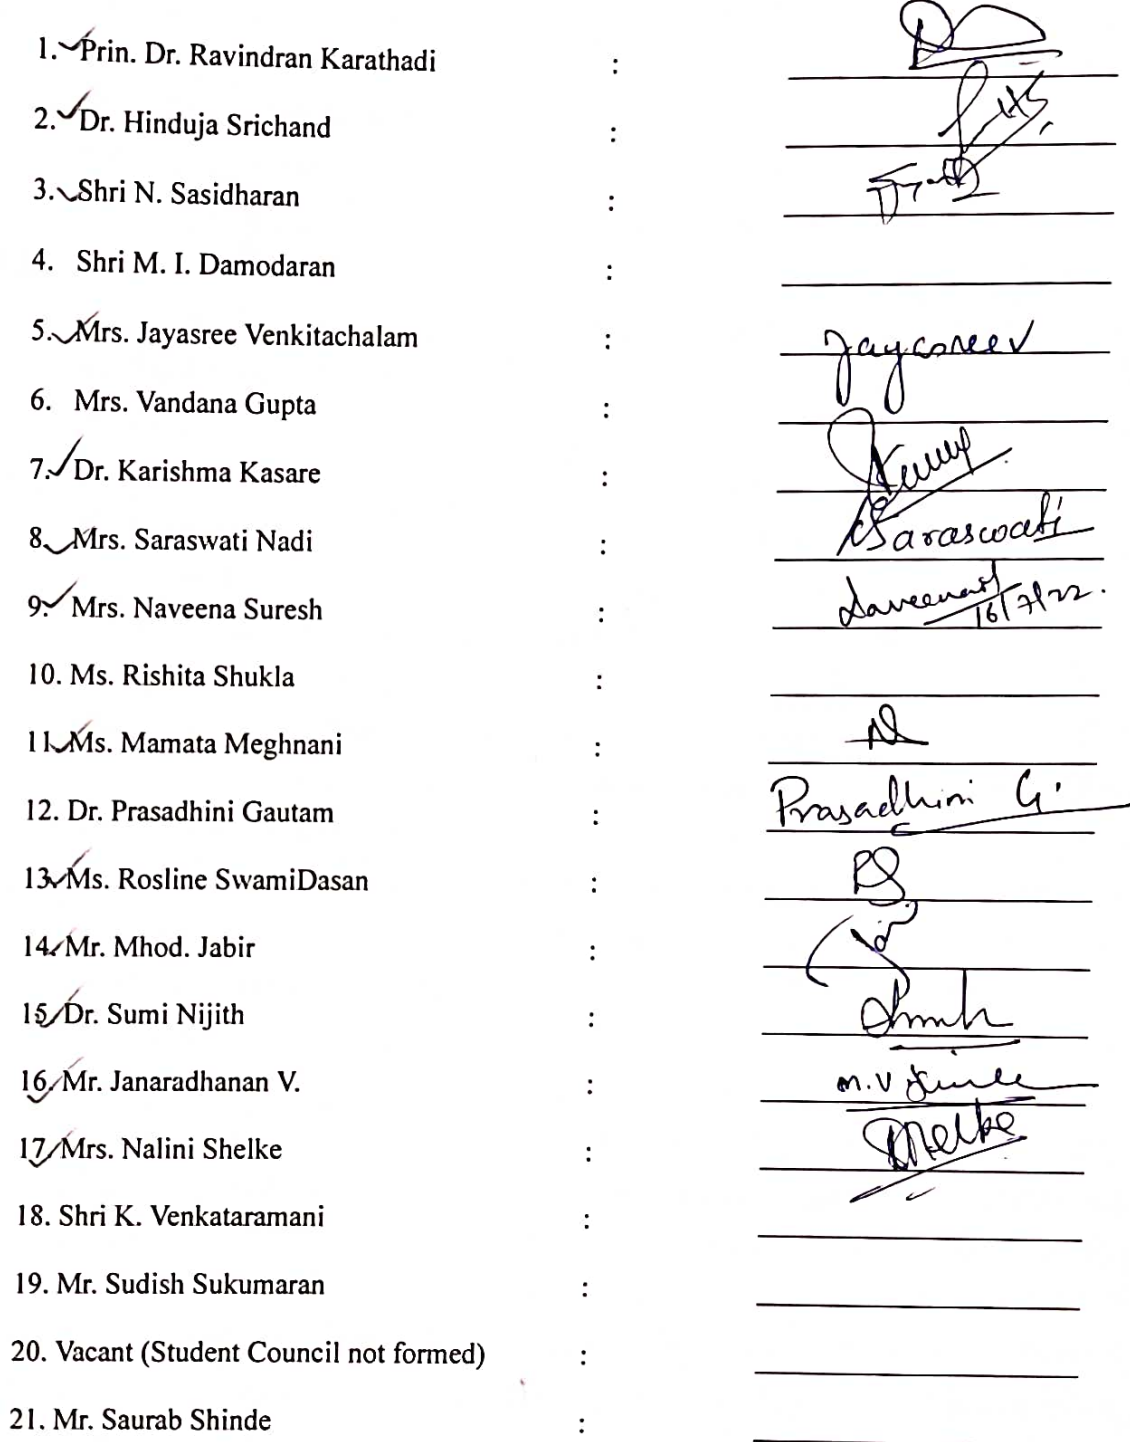 1. Prin. Dr. Ravindran Karathadi :
2. Dr. Hinduja Srichand :
3. Shri N. Sasidharan :
4. Shri M. I. Damodaran :
5. Mrs. Jayasree Venkitachalam : Jayasree V
6. Mrs. Vandana Gupta :
7. Dr. Karishma Kasare :
8. Mrs. Saraswati Nadi : Saraswati
9. Mrs. Naveena Suresh : 16/7/22.
10. Ms. Rishita Shukla :
11. Ms. Mamata Meghnani :
12. Dr. Prasadhini Gautam : Prasadhini G.
13. Ms. Rosline SwamiDasan : RS
14. Mr. Mhod. Jabir :
15. Dr. Sumi Nijith :
16. Mr. Janaradhanan V. : M.V
17. Mrs. Nalini Shelke : Shelke
18. Shri K. Venkataramani :
19. Mr. Sudish Sukumaran :
20. Vacant (Student Council not formed) :
21. Mr. Saurab Shinde :